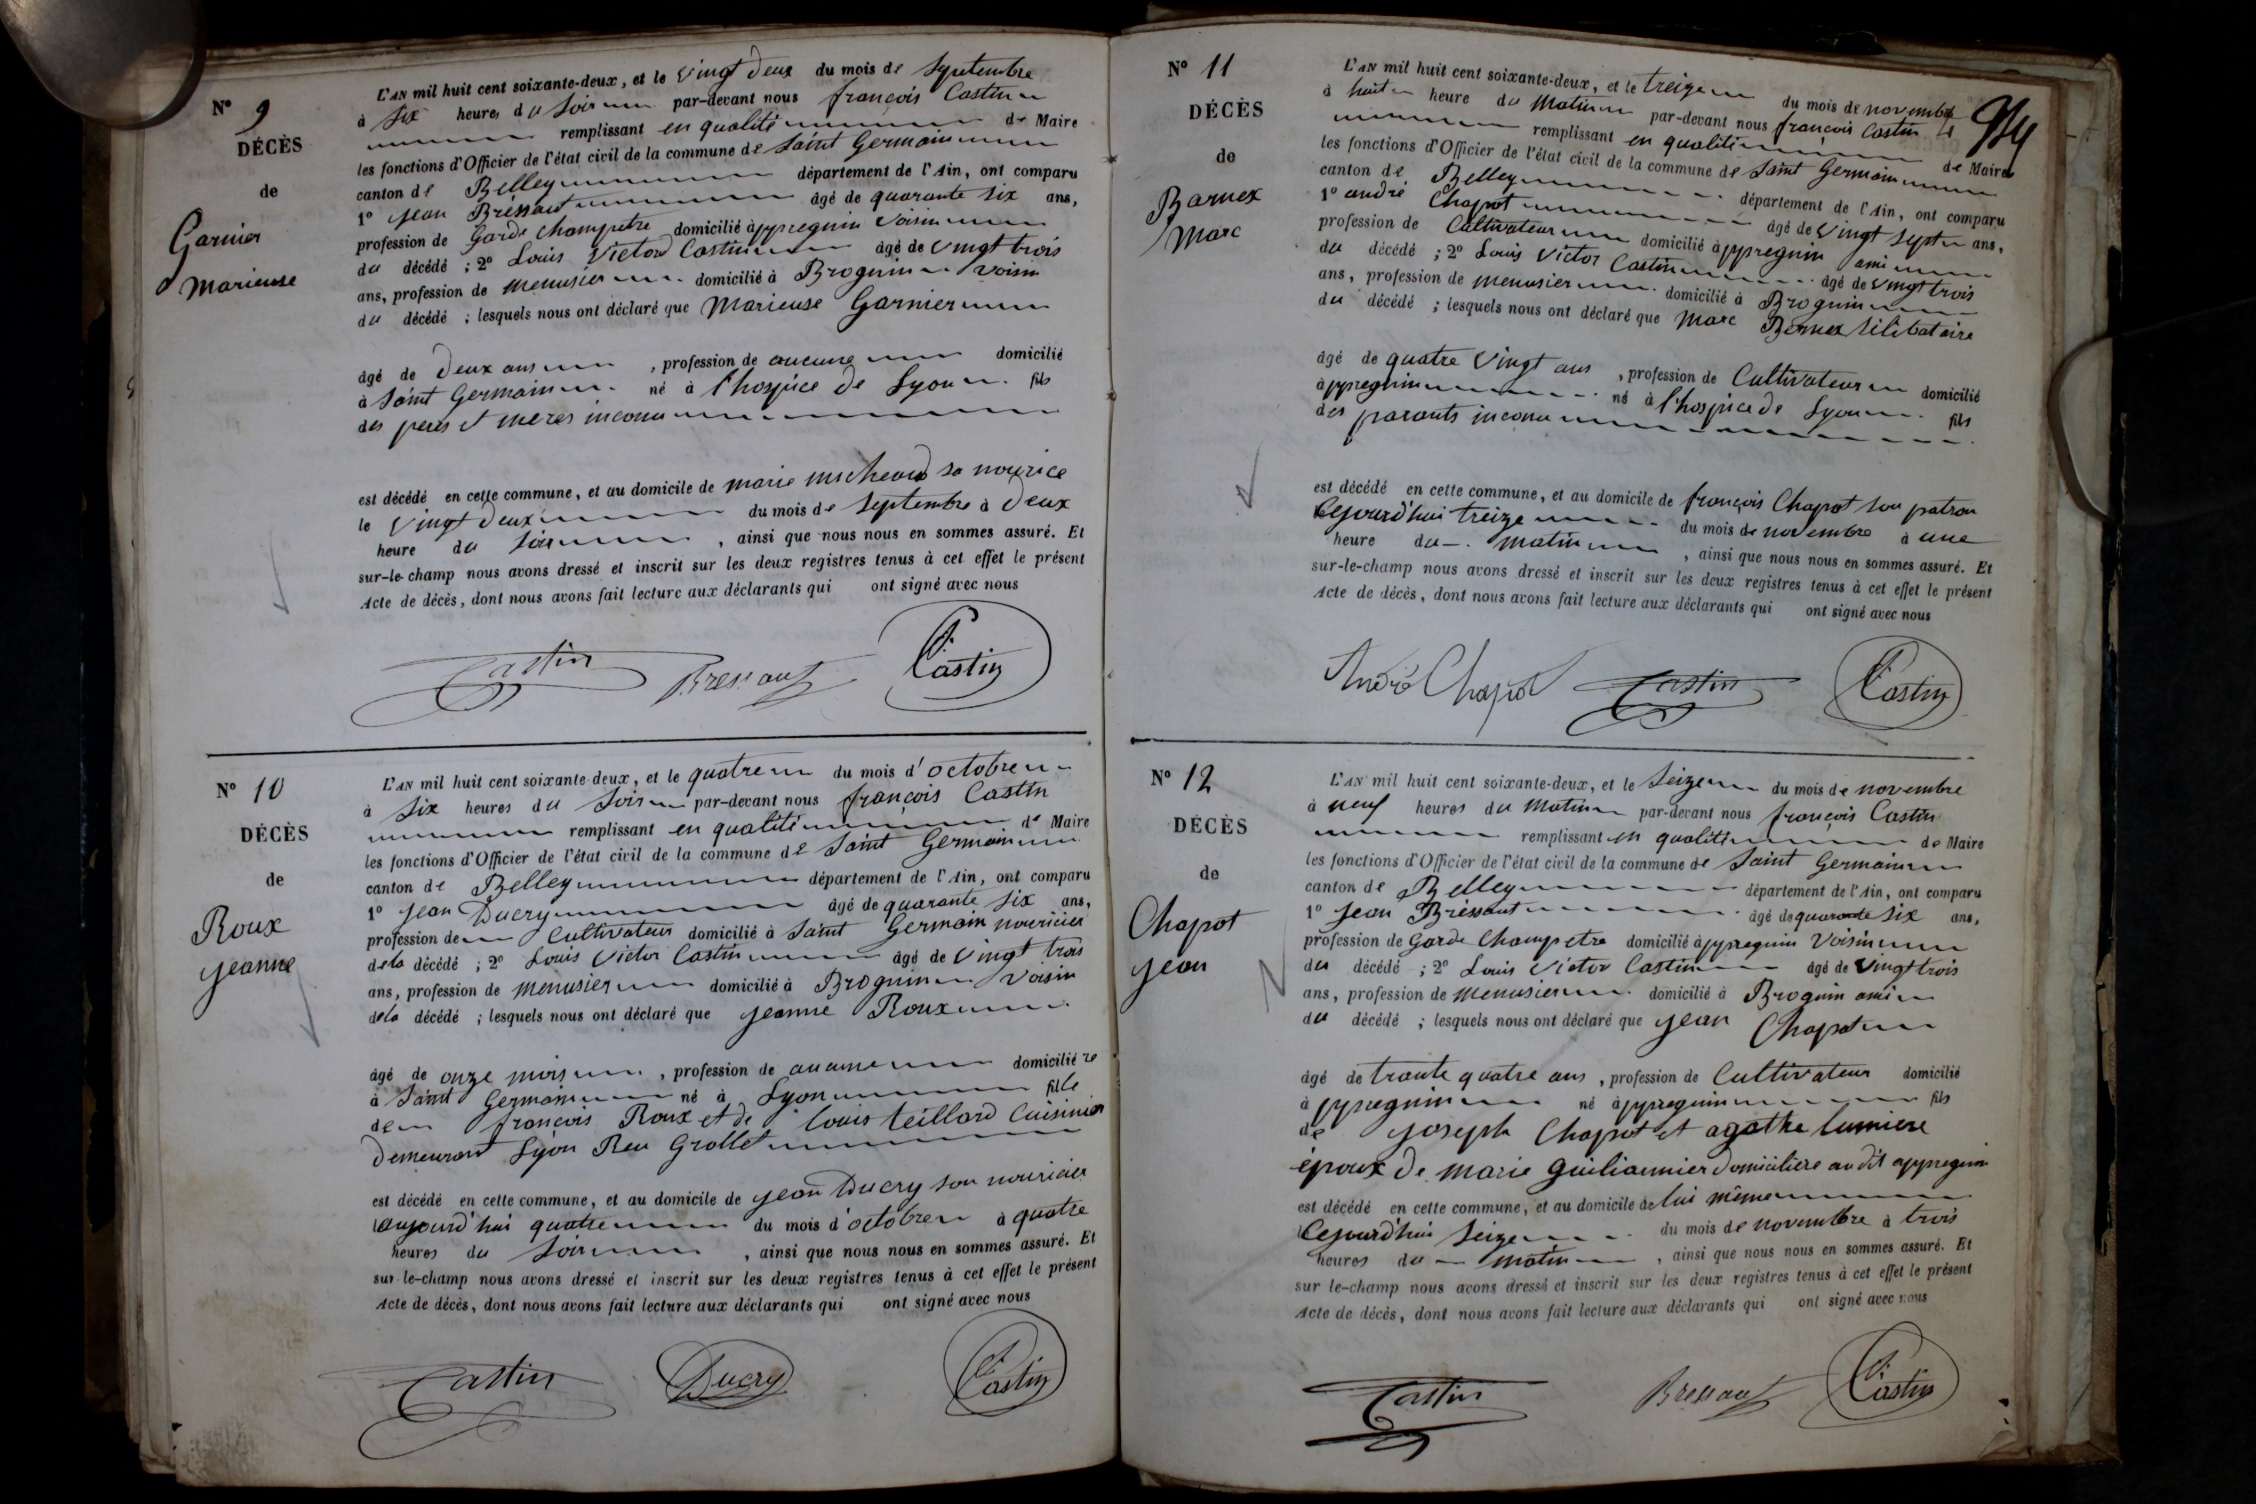 N° 9
DÉCÈS
de
Garnier
Marieuse
L'AN mil huit cent soixante-deux, et le vingt deux du mois de septembre
à six heures du soir par-devant nous françois Castin
remplissant en qualité de Maire
les fonctions d'Officier de l'état civil de la commune de saint Germain
canton de Belley département de l'Ain, ont comparu
1° jean Bressaut âgé de quarante six ans,
profession de Garde champetre domicilié à appregnin voisin
du décédé ; 2° Louis Victor Castin âgé de vingt trois
ans, profession de menusier domicilié à Brognin voisin
du décédé ; lesquels nous ont déclaré que Marieuse Garnier
âgé de deux ans , profession de aucune domicilié
à saint Germain né à l'hospice de Lyon fils
des peres et meres inconu
est décédé en cette commune, et au domicile de marie sa nourice
le vingt deux du mois de septembre à deux
heure du soir , ainsi que nous nous en sommes assuré. Et
sur-le-champ nous avons dressé et inscrit sur les deux registres tenus à cet effet le présent
Acte de décès, dont nous avons fait lecture aux déclarants qui ont signé avec nous
Castin Bressaut Castin
N° 10
DÉCÈS
de
Roux
jeanne
L'AN mil huit cent soixante-deux, et le quatre du mois d'octobre
à six heures du soir par-devant nous françois Castin
remplissant en qualité de Maire
les fonctions d'Officier de l'état civil de la commune de saint Germain
canton de Belley département de l'Ain, ont comparu
1° jean Ducry âgé de quarante six ans,
profession de cultivateur domicilié à saint Germain nouricier
de la décédé ; 2° Louis Victor Castin âgé de vingt trois
ans, profession de menusier domicilié à Brognin voisin
de la décédé ; lesquels nous ont déclaré que jeanne Roux
âgé de onze mois , profession de aucune domicilié re
à saint Germain né à Lyon fille
de françois Roux et de louis teillard Cuisinier
demeurant Lyon Reu Grollet
est décédé en cette commune, et au domicile de jean Ducry son nouricier
aujourd'hui quatre du mois d'octobre à quatre
heures du soir , ainsi que nous nous en sommes assuré. Et
sur-le-champ nous avons dressé et inscrit sur les deux registres tenus à cet effet le présent
Acte de décès, dont nous avons fait lecture aux déclarants qui ont signé avec nous
Castin Ducry Castin
N° 11
DÉCÈS
de
Barnex
Marc
L'AN mil huit cent soixante-deux, et le treize du mois de novembre
à huit heure du matin par-devant nous françois Castin
remplissant en qualité de Maire
les fonctions d'Officier de l'état civil de la commune de saint Germain
canton de Belley département de l'Ain, ont comparu
1° andré Chapot âgé de vingt sept ans,
profession de Cultivateur domicilié à appregnin ami
du décédé ; 2° Louis Victor Castin âgé de vingt trois
ans, profession de menusier domicilié à Brognin
du décédé ; lesquels nous ont déclaré que marc Bernex célibataire
âgé de quatre vingt ans , profession de Cultivateur domicilié
à appregnin né à l'hospice de Lyon fils
des parants inconu
est décédé en cette commune, et au domicile de françois Chapot son patron
Cejourd'hui treize du mois de novembre à une
heure du matin , ainsi que nous nous en sommes assuré. Et
sur-le-champ nous avons dressé et inscrit sur les deux registres tenus à cet effet le présent
Acte de décès, dont nous avons fait lecture aux déclarants qui ont signé avec nous
André Chapot Castin Castin
N° 12
DÉCÈS
de
Chapot
jean
L'AN mil huit cent soixante-deux, et le seize du mois de novembre
à neuf heures du matin par-devant nous françois Castin
remplissant en qualité de Maire
les fonctions d'Officier de l'état civil de la commune de saint Germain
canton de Belley département de l'Ain, ont comparu
1° jean Bressaut âgé de quarante six ans,
profession de Garde Champetre domicilié à appregnin voisin
du décédé ; 2° Louis Victor Castin âgé de vingt trois
ans, profession de menusier domicilié à Brognin ami
du décédé ; lesquels nous ont déclaré que jean Chapot
âgé de trante quatre ans , profession de Cultivateur domicilié
à appregnin né à appregnin fils
de joseph Chapot et agathe lumiere
époux de marie guilianmier domiciliere au dit appregnin
est décédé en cette commune, et au domicile de lui même
Cejourd'hui seize du mois de novembre à trois
heures du matin , ainsi que nous nous en sommes assuré. Et
sur le-champ nous avons dressé et inscrit sur les deux registres tenus à cet effet le présent
Acte de décès, dont nous avons fait lecture aux déclarants qui ont signé avec nous
Castin Bressaut Castin